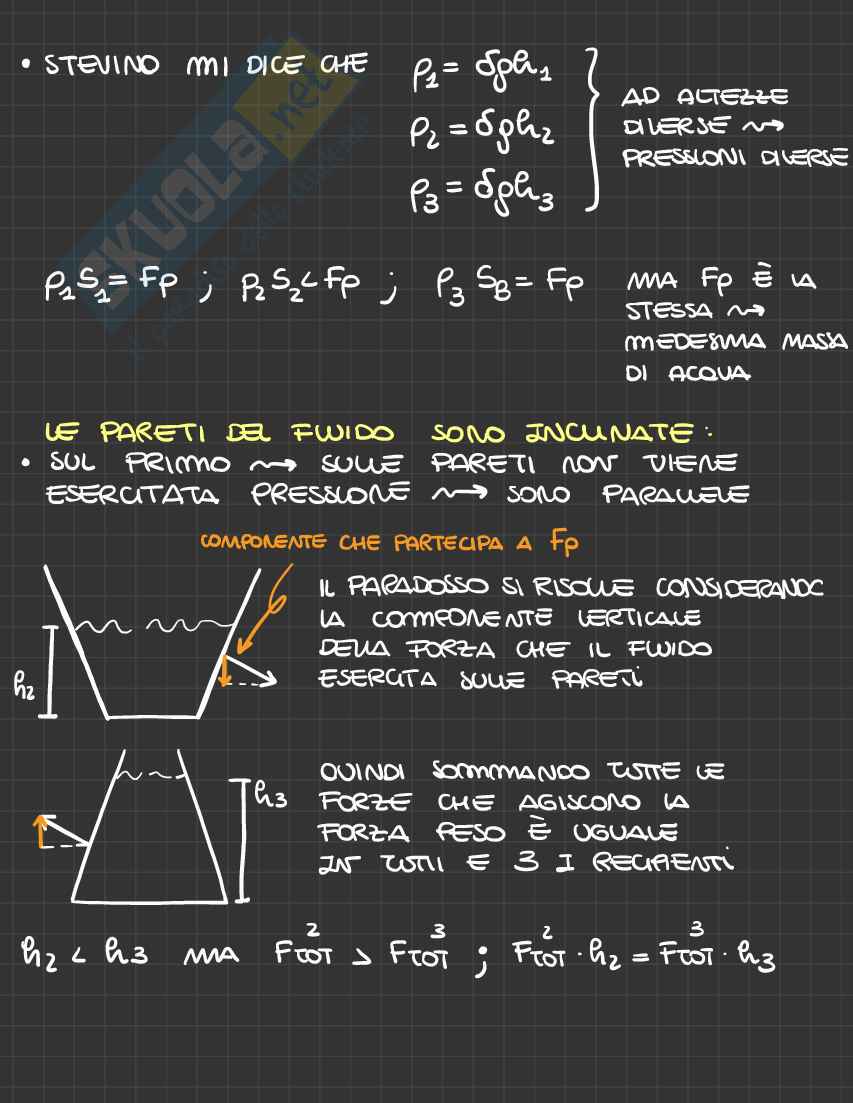 • STEVINO MI DICE CHE
p₁ = δgh₁
p₂ = δgh₂
p₃ = δgh₃
AD ALTEZZE
DIVERSE ⇝
PRESSIONI DIVERSE
SKUOLA.net
p₁S₁ = Fp ; p₂S₂ < Fp ; p₃ S_B = Fp
MA Fp È LA
STESSA ⇝
MEDESIMA MASSA
DI ACQUA
LE PARETI DEL FLUIDO SONO INCLINATE:
• SUL PRIMO ⇝ SULLE PARETI NON VIENE
ESERCITATA PRESSIONE ⇝ SONO PARALLELE
COMPONENTE CHE PARTECIPA A Fp
IL PARADOSSO SI RISOLVE CONSIDERANDO
LA COMPONENTE VERTICALE
DELLA FORZA CHE IL FLUIDO
ESERCITA SULLE PARETI
h₂
h₃
QUINDI SOMMANDO TUTTE LE
FORZE CHE AGISCONO LA
FORZA PESO È UGUALE
IN TUTTI E 3 I RECIPIENTI
h₂ < h₃ MA F²TOT > F³TOT ; F²TOT · h₂ = F³TOT · h₃